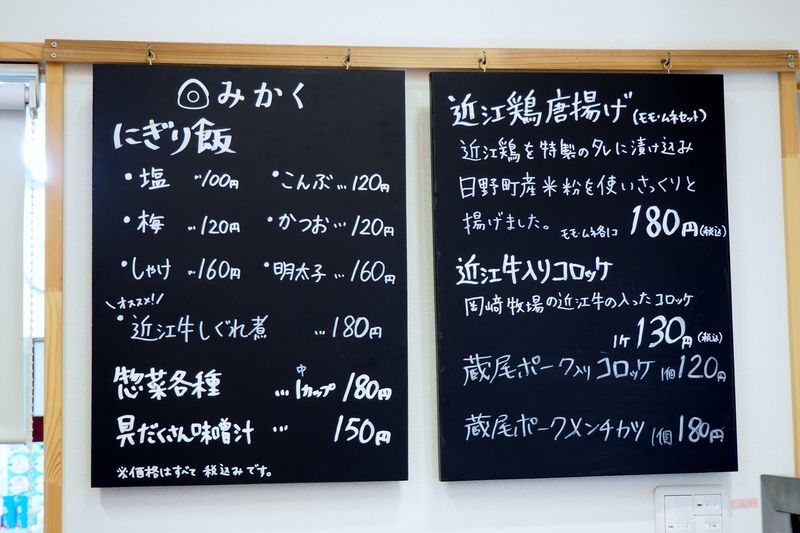 みかく
にぎり飯
・塩 …100円
・こんぶ…120円
・梅 …120円
・かつお…120円
・しゃけ…160円
・明太子…160円
\オススメ!/
・近江牛しぐれ煮 …180円
惣菜各種 …中1カップ180円
具だくさん味噌汁 … 150円
※価格はすべて税込みです。
近江鶏唐揚げ(モモ・ムネセット)
近江鶏を特製のタレに漬け込み
日野町産米粉を使いさっくりと
揚げました。モモ・ムネ各1コ 180円(税込)
近江牛入りコロッケ
岡崎牧場の近江牛の入ったコロッケ
1ケ130円(税込)
蔵尾ポーク入りコロッケ1個120円
蔵尾ポークメンチカツ 1個180円